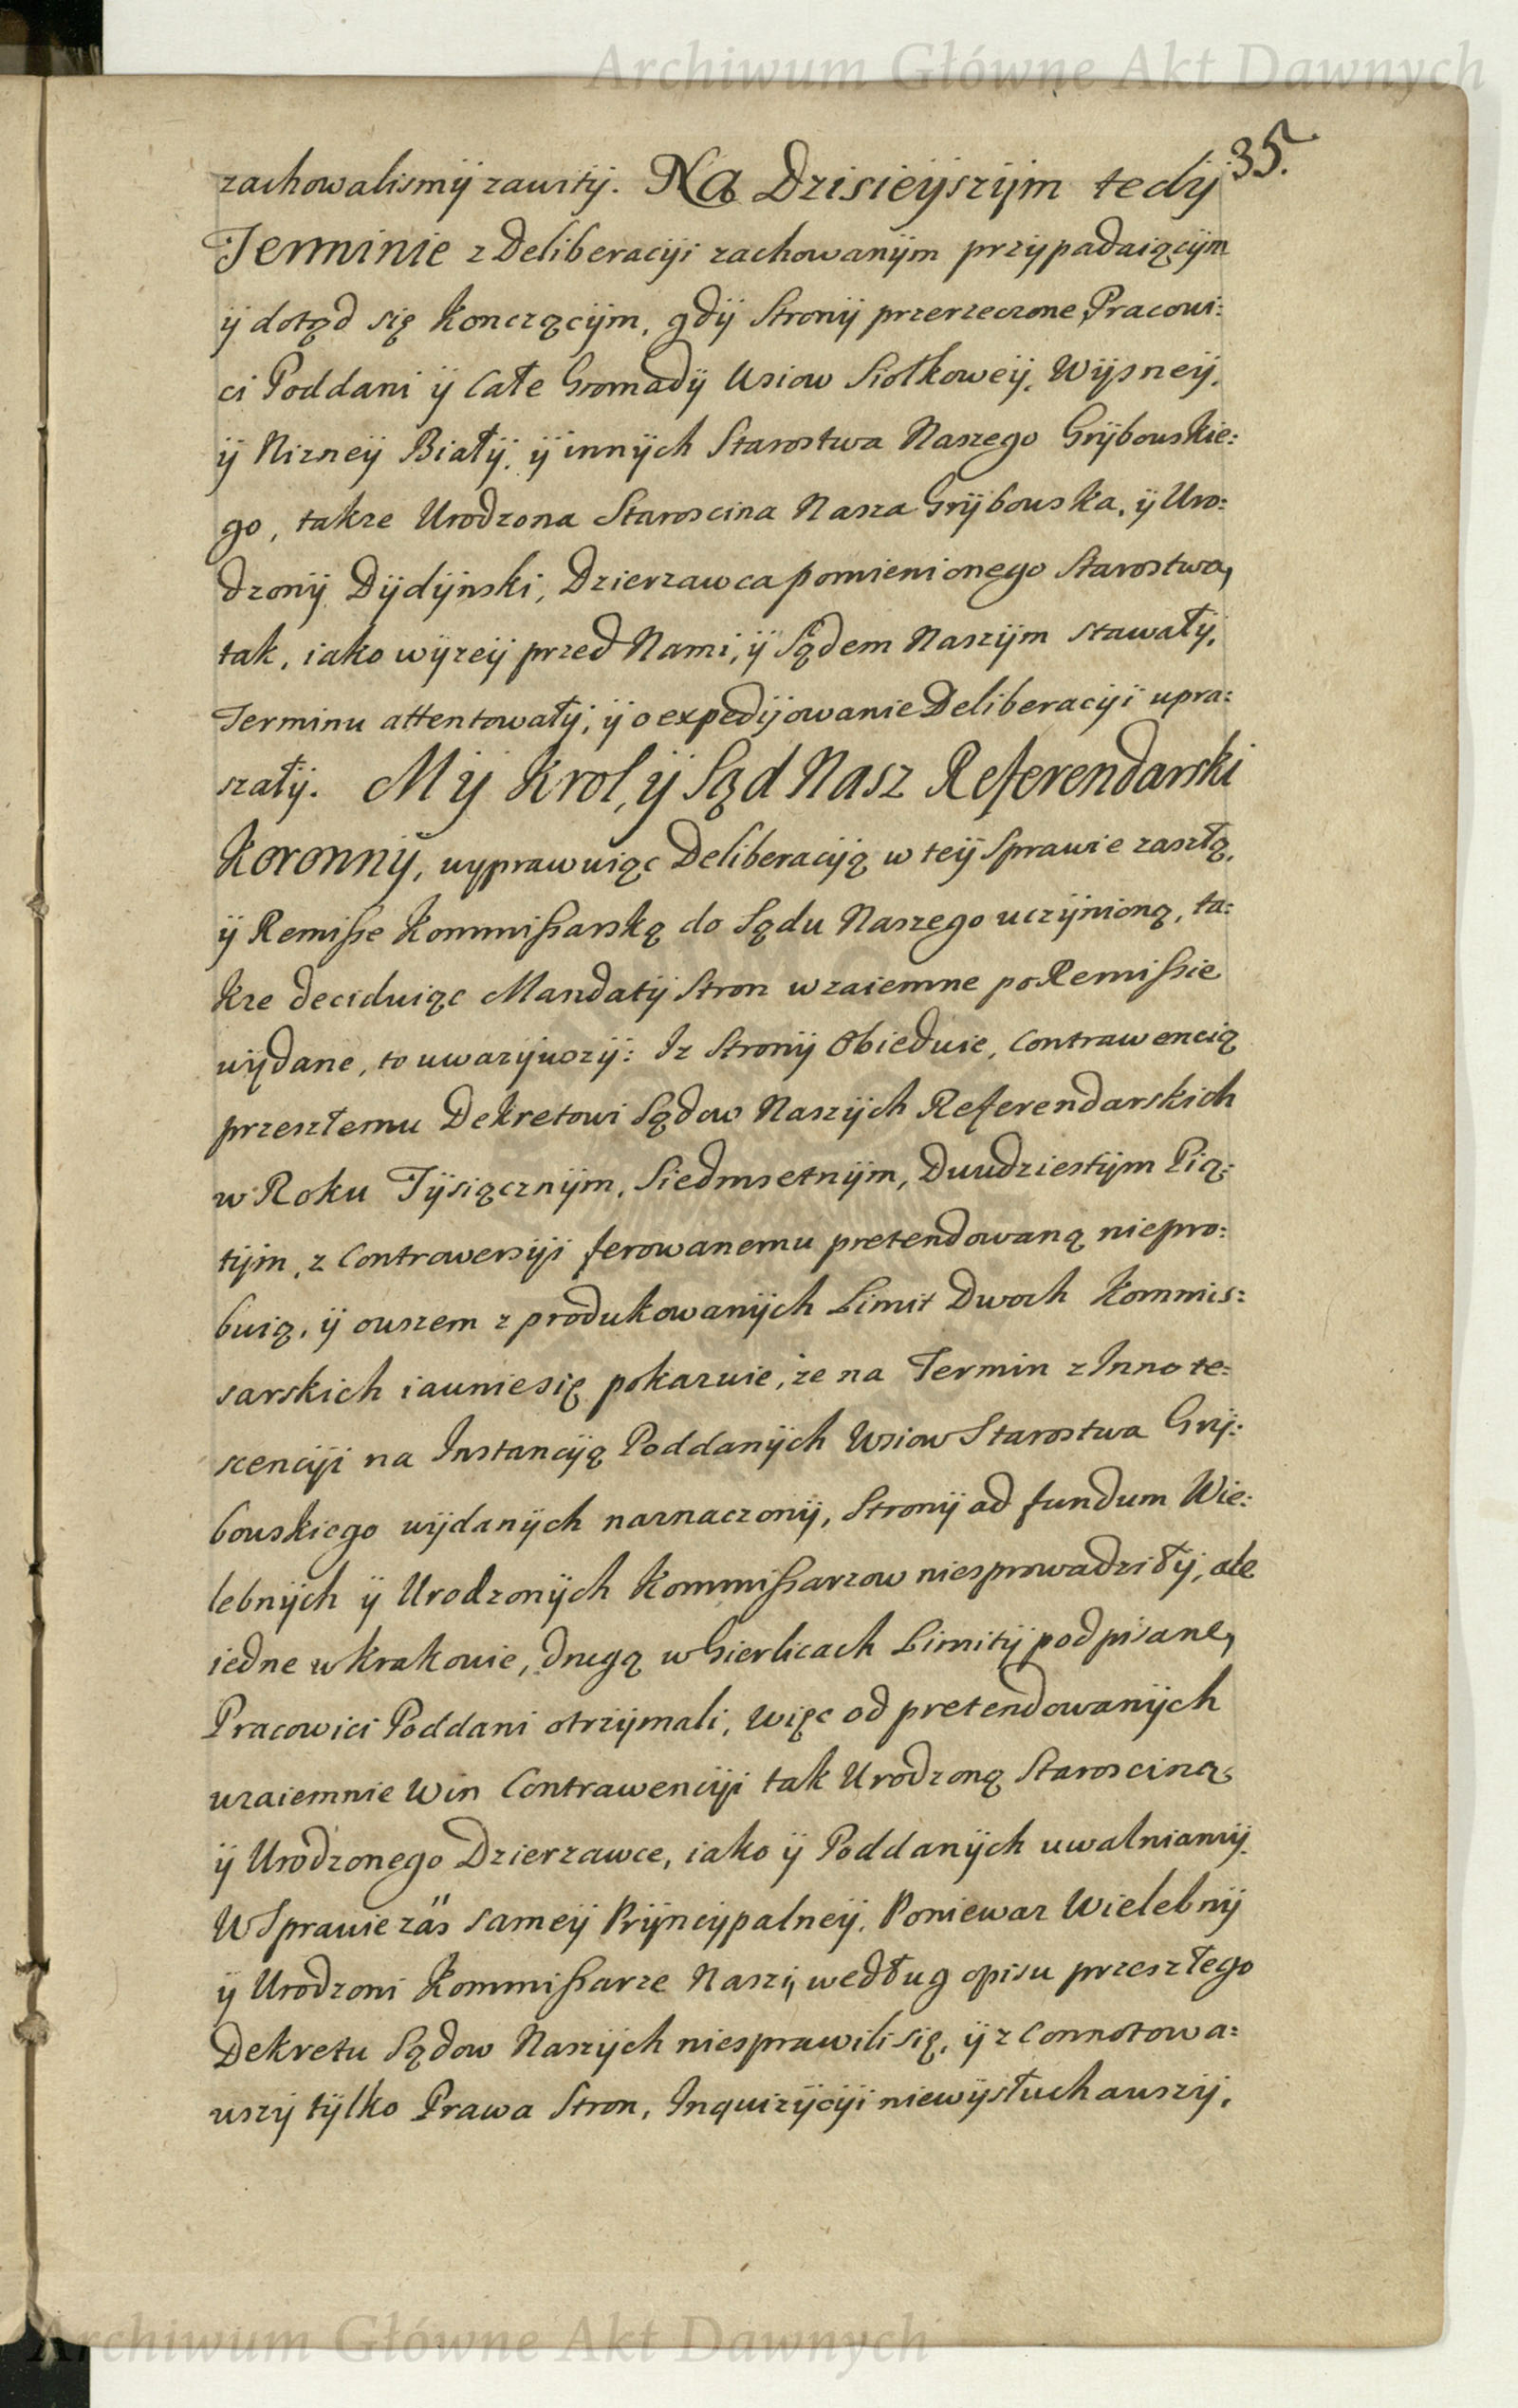 Archiwum Główne Akt Dawnych
35.
zachowalismÿ zawitÿ. Na Dzisieÿszÿm tedÿ
Terminie z Deliberacÿi zachowanÿm przÿpadaiącÿm
ÿ dotąd się konczącÿm, gdÿ Stronÿ przerzeczone Pracowi:
ci Poddani ÿ Całe Gromadÿ Wsiow Siołkoweÿ, Wÿsneÿ,
ÿ Nizneÿ Białÿ, ÿ innÿch Starostwa Naszego Grÿbowskie:
go, takze Urodzona Staroscina Nasza Grÿbowska, ÿ Uro:
dzonÿ Dÿdÿnski, Dzierzawca pomienionego Starostwa,
tak, iako wÿzeÿ przed Nami, ÿ Sądem Naszÿm stawałÿ,
Terminu attentowałÿ, ÿ o expedÿowanie Deliberacÿi upra:
szałÿ. Mÿ Krol, ÿ Sąd Nasz Referendarski
Koronnÿ, wyprawuiąc Deliberacÿą w teÿ Sprawie zaszłą,
ÿ Remiſse Kommiſsarską do Sądu Naszego uczÿnioną, ta:
kze deciduiąc Mandatÿ Stron wzaiemne po Remiſsie
wÿdane, to uwazÿwszÿ: Iz Stronÿ Obiedwie, Contrawencią
przeszłemu Dekretowi Sądow Naszÿch Referendarskich
w Roku Tÿsiącznÿm, Siedmsetnÿm, Dwudziestÿm Pią:
tÿm, z Controwersÿi ferowanemu pretendowaną niepro:
buią, ÿ owszem z produkowanÿch Limit Dwoch Kommis:
sarskich iawnie się pokazuie, że na Termin z Innote:
scencÿi na Instancÿą Poddanÿch Wsiow Starostwa Grÿ:
bowskiego wÿdanÿch naznaczonÿ, Stronÿ ad fundum Wie:
lebnÿch ÿ Urodzonÿch Kommiſsarzow niesprowadziłÿ, ale
iedne w Krakowie, drugą w Gierlicach Limitÿ podpisane,
Pracowici Poddani otrzÿmali, więc od pretendowanÿch
wzaiemnie Win Contrawencÿi tak Urodzoną Staroscinę
ÿ Urodzonego Dzierzawce, iako ÿ Poddanÿch uwalniamÿ.
W Sprawie zäs sameÿ Prÿncÿpalneÿ, Poniewaz Wielebnÿ
ÿ Urodzoni Kommiſsarze Naszi, według opisu przeszłego
Dekretu Sądow Naszÿch niesprawili się, ÿ z Connotowa:
wszÿ tÿlko Prawa Stron, Inquizÿcÿi niewÿsłuchawszÿ,
Archiwum Główne Akt Dawnych